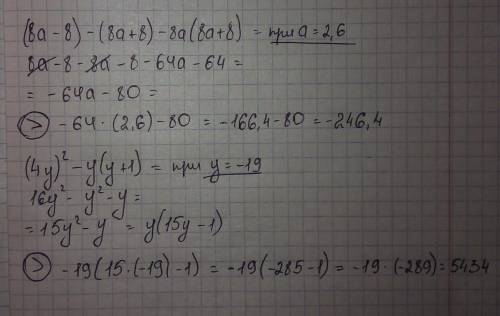 (8a-8)-(8a+8)-8a(8a+8) = при a=2,6
8a-8-8a-8-64a-64=
= -64a-80=
> -64·(2,6)-80 = -166,4-80=-246,4
(4y)²-y(y+1) = при y=-19
16y²- y²-y=
=15y²-y = y(15y-1)
> -19(15·(-19)-1) = -19(-285-1) = -19·(-289)=5434